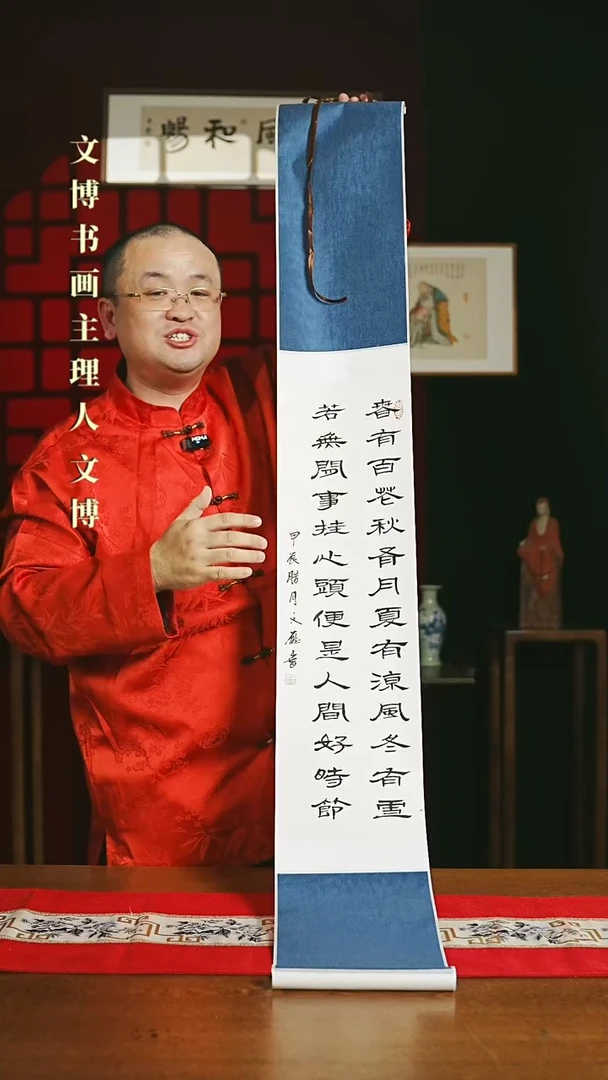 文博书画主理人文博
風和暢
春有百花秋有月夏有涼風冬有雪
若無閒事挂心頭便是人間好時節
甲辰腊月文書